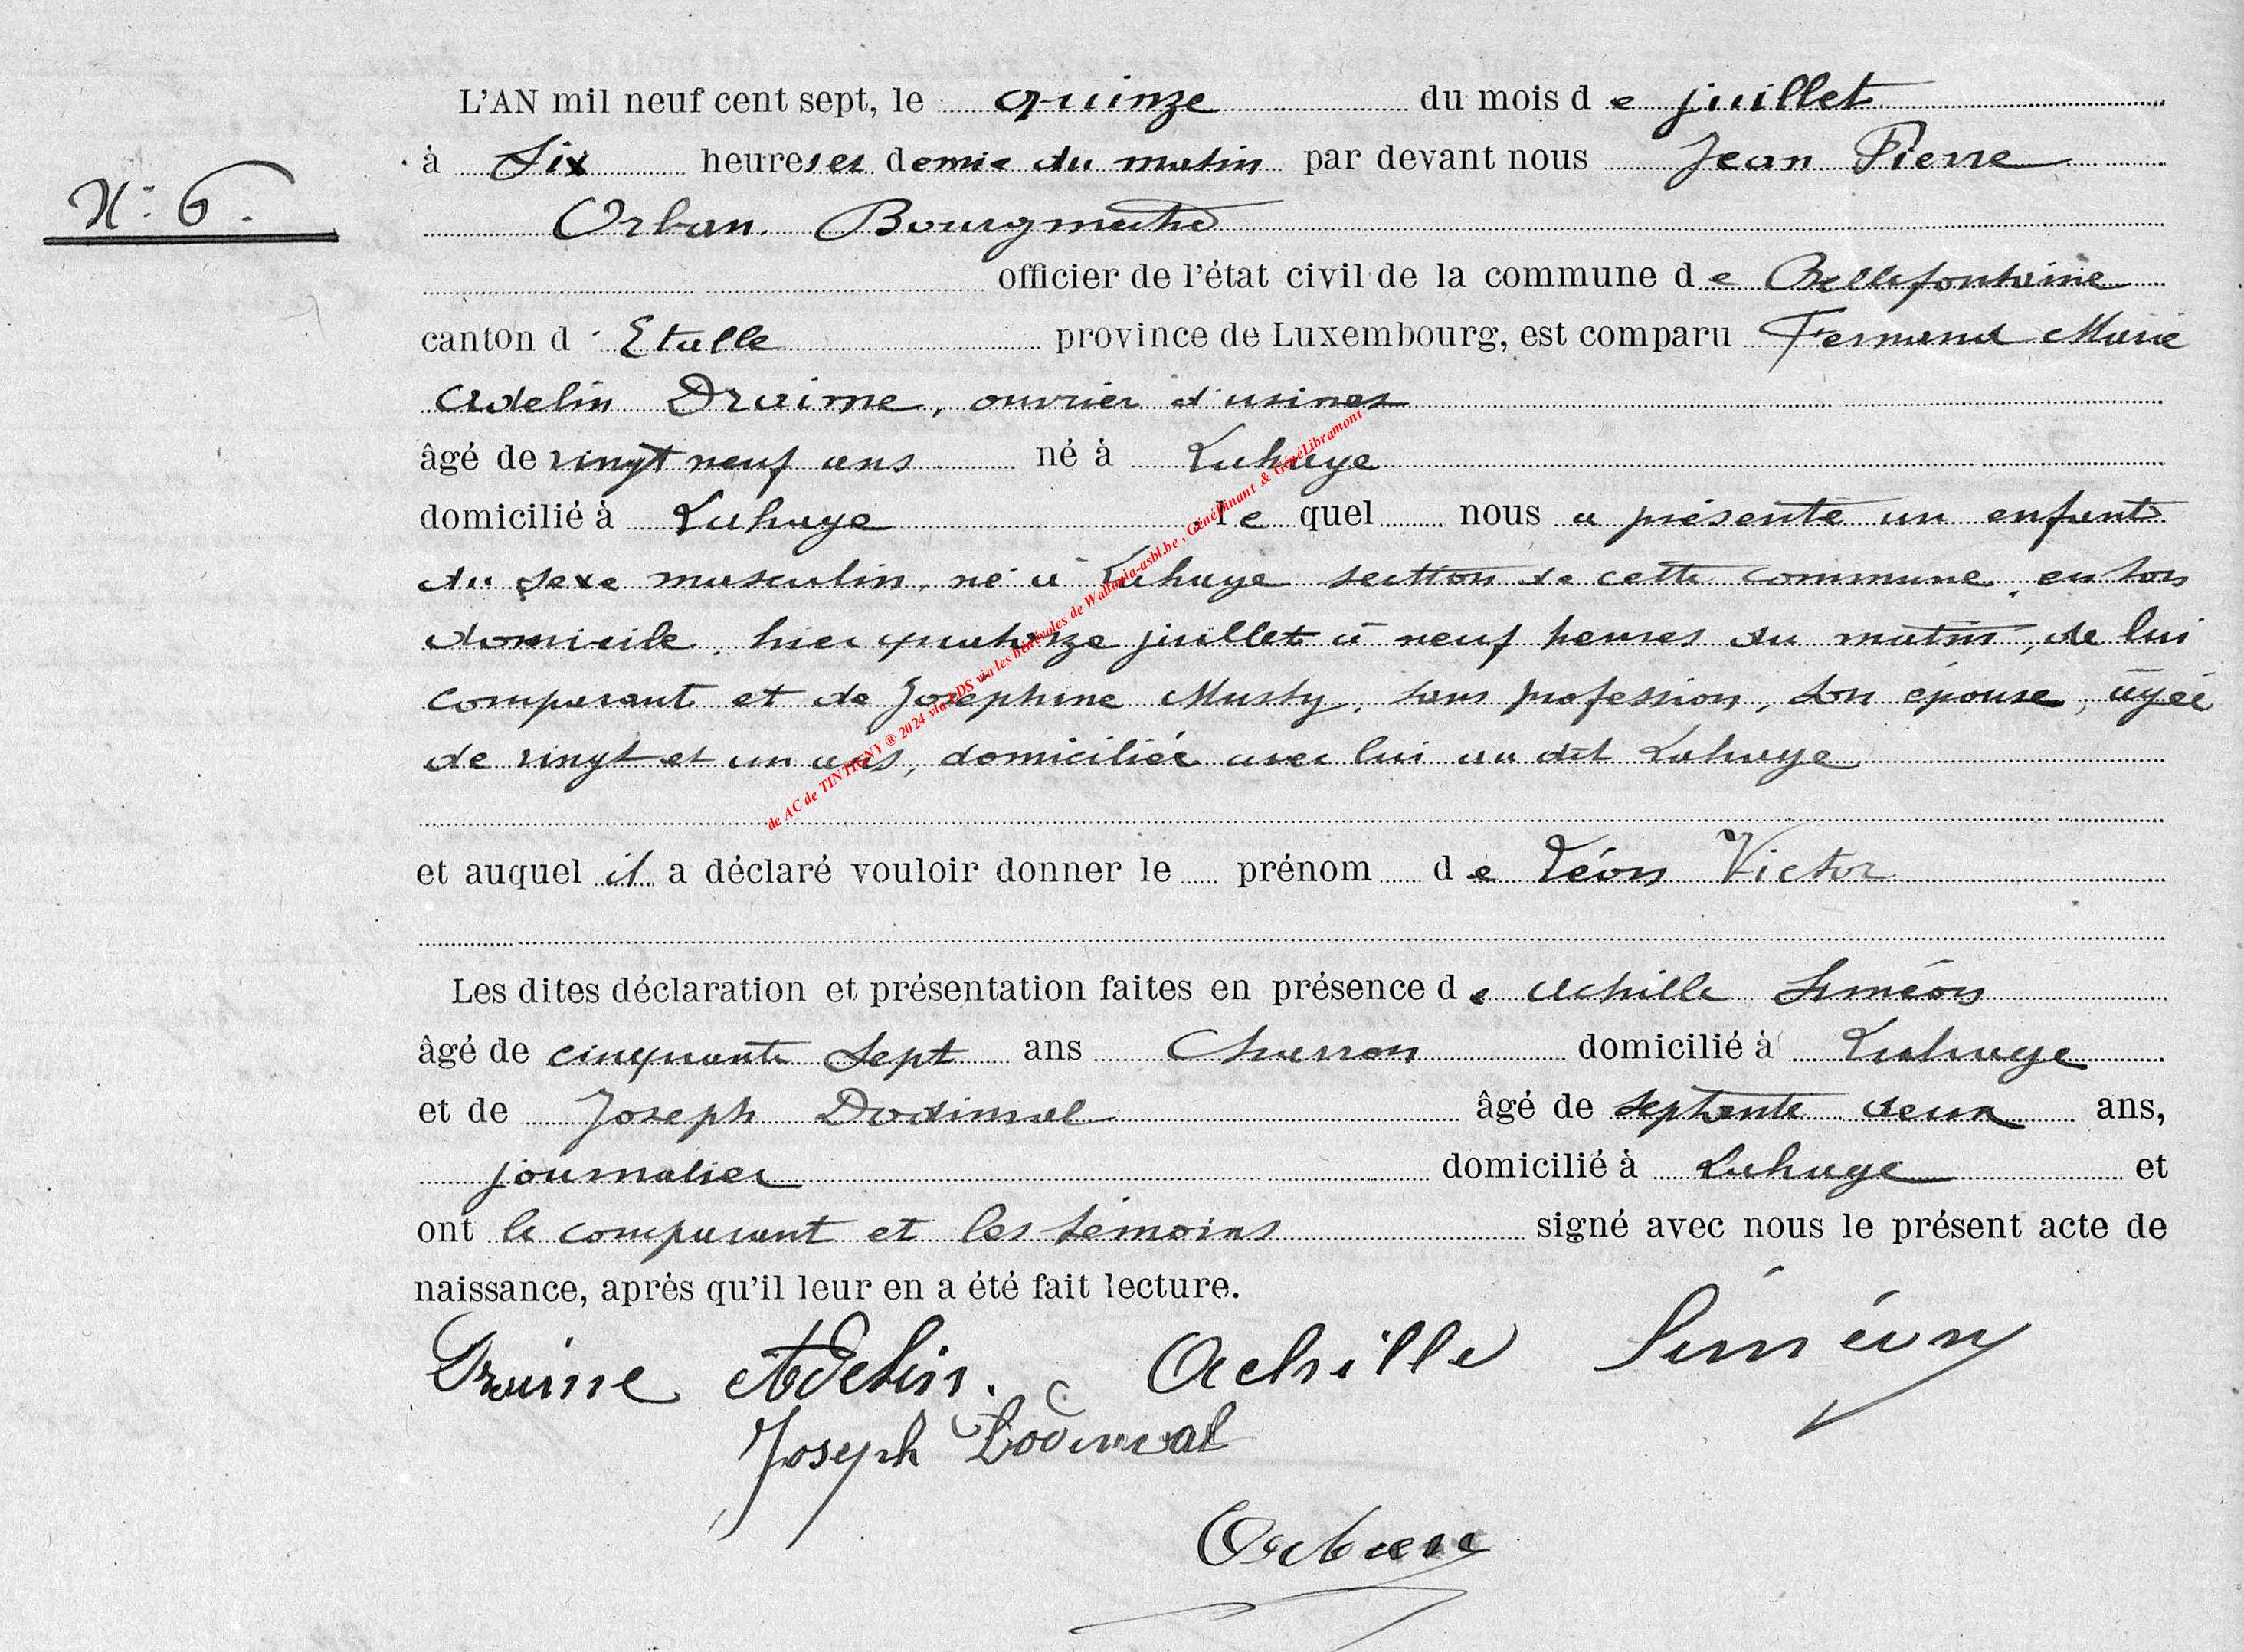 L'AN mil neuf cent sept, le quinze du mois de juillet
à Six heures et demie du matin par devant nous Jean Pierre
N° 6.
Orban, Bourgmestre
officier de l'état civil de la commune de Bellefontaine
canton d'Etalle province de Luxembourg, est comparu Fernand Marie
Adelin Draime, ouvrier d'usines
âgé de vingt neuf ans né à Lahage
domicilié à Lahage le quel nous a présenté un enfant
du sexe masculin, né à Lahage section de cette commune, en son
domicile, hier quatorze juillet à neuf heures du matin, de lui
comparant et de Joséphine Musty, sans profession, son épouse, âgée
de vingt et un ans, domiciliée avec lui au dit Lahage
et auquel il a déclaré vouloir donner le prénom de Léon Victor
Les dites déclaration et présentation faites en présence de Achille Siméon
âgé de cinquante sept ans Charron domicilié à Lahage
et de Joseph Dodinval âgé de septante deux ans,
journalier domicilié à Lahage et
ont le comparant et les témoins signé avec nous le présent acte de
naissance, après qu'il leur en a été fait lecture.
Draime Adelin. Achille Siméon
Joseph Dodinval
Orban
de AC de TINTIGNY ® 2024 via LDS via les bénévoles de Wallonia-asbl.be , GénéDinant & GénéLibramont